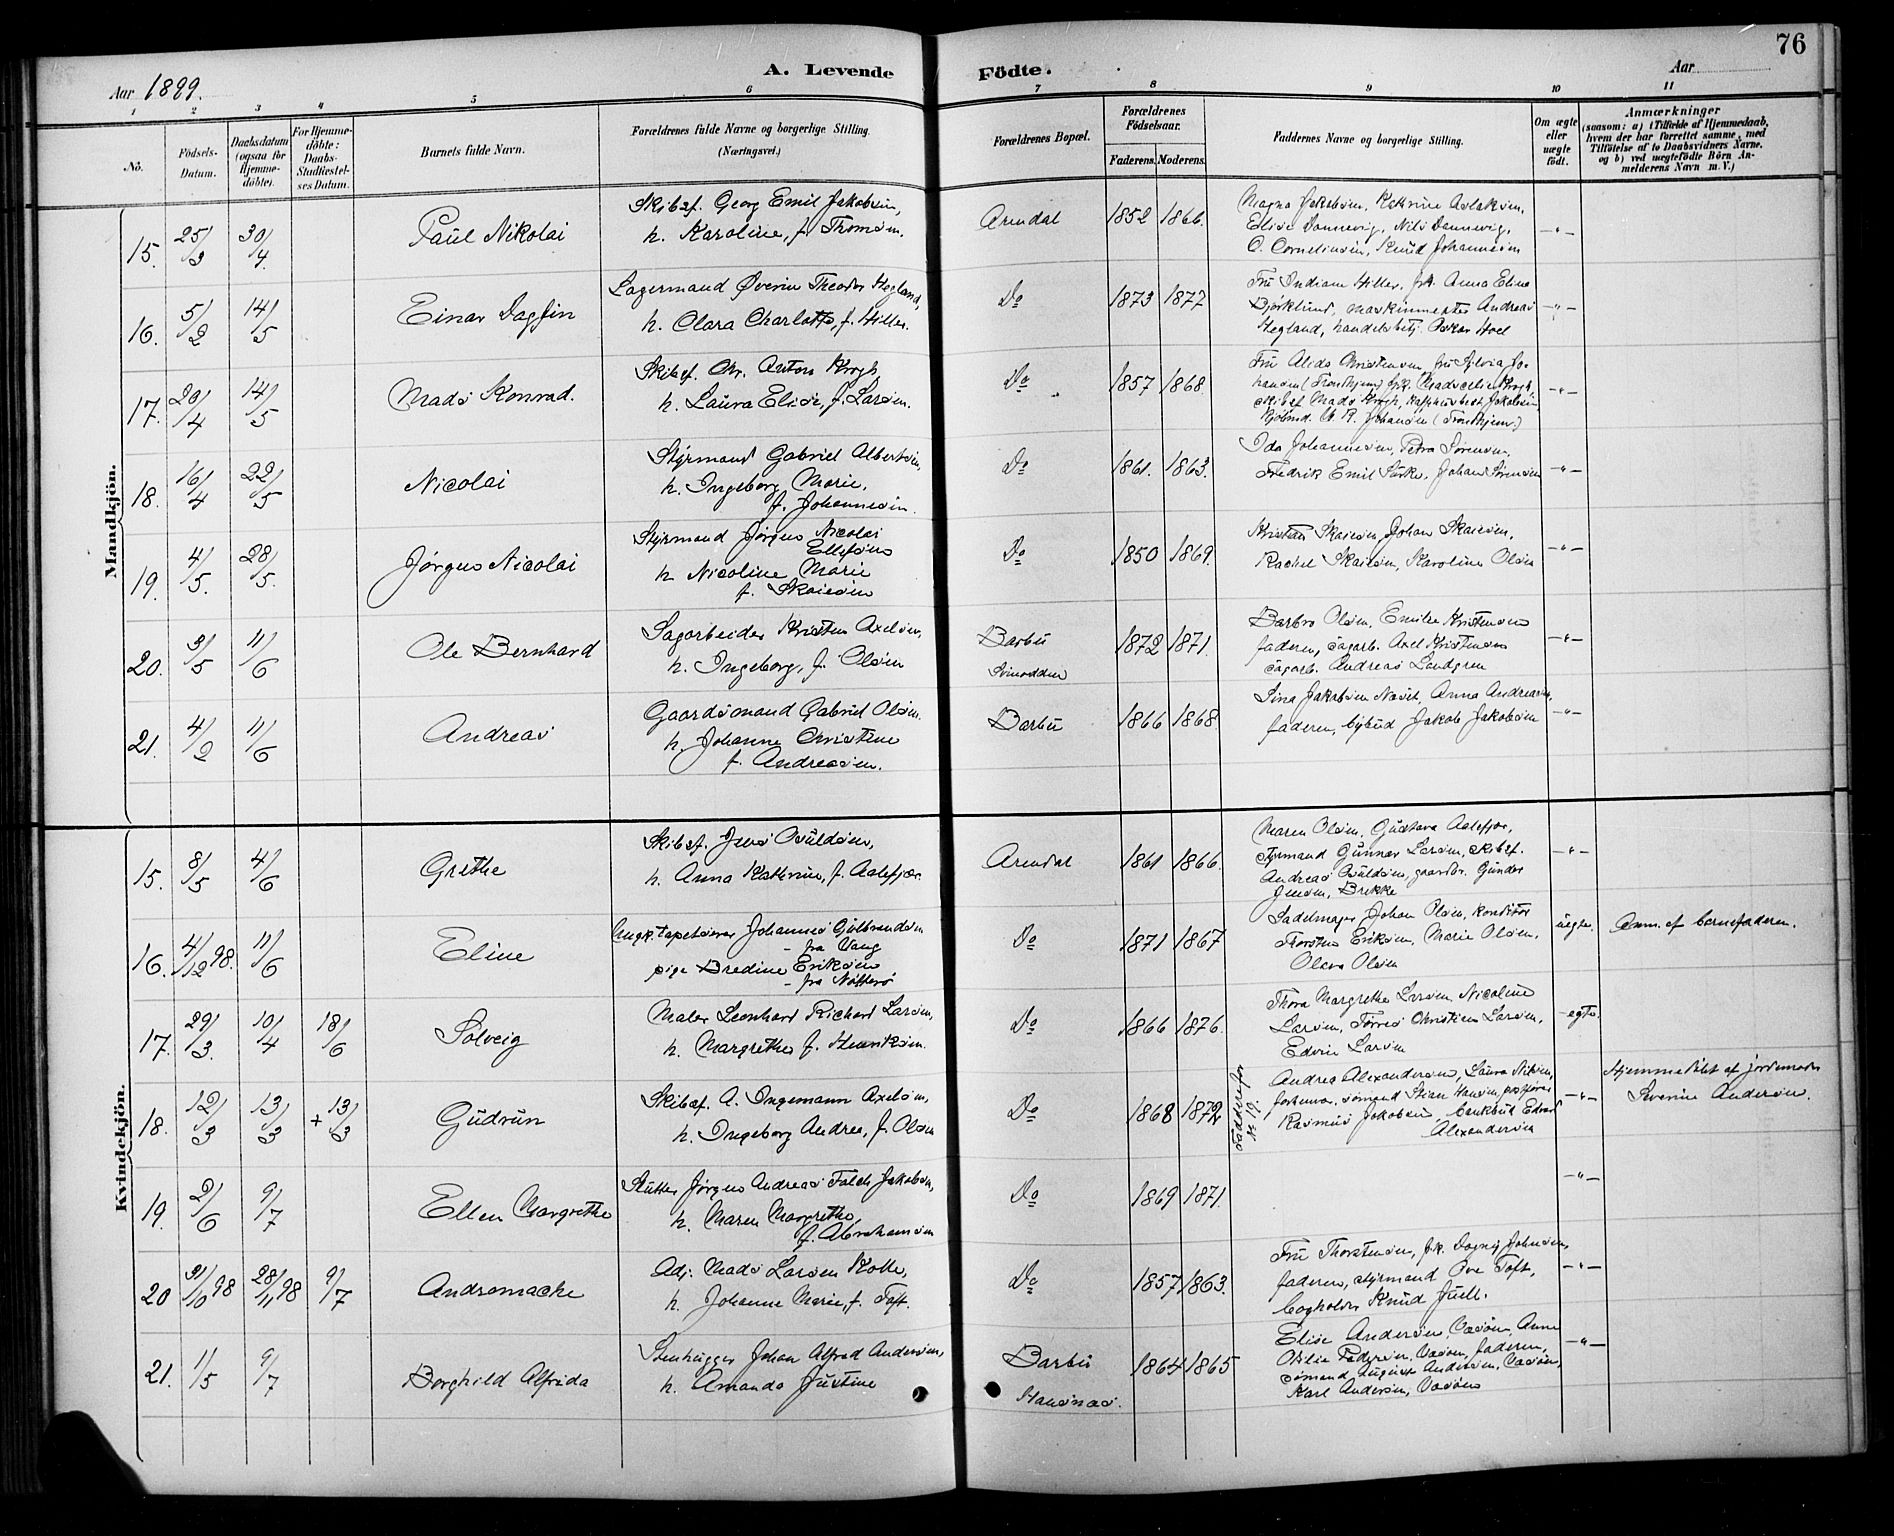 76
A. Levende Födte.
Aar 1899.
Aar
1 2 3 4 5 6 7 8 9 10 11
No.
Födsels-Datum.
Daabsdatum (ogsaa for Hjemme-döbte).
For Hjemme-döbte: Daabs-Stadfæstel-ses Datum.
Barnets fulde Navn.
Forældrenes fulde Navne og borgerlige Stilling. (Næringsvei.)
Forældrenes Bopæl.
Forældrenes Födselsaar.
Faderens. Moderens.
Faddernes Navne og borgerlige Stilling.
Om ægte eller uægte født.
Anmærkninger
(saasom: a) i Tilfælde af Hjemmedaab, hvem der har forrettet samme, med Tilföielse af to Daabsvidners Navne, og b) ved uægtefödte Börn An-melderens Navn m. V.)
Mandkjön.
15. 25/3 30/4 Paul Nikolai
Skibsf. Georg Emil Jakobsen,
h. Karoline, f. Thomsen.
Arendal 1852 1866.
Magna Jakobsen, Kathrine Aslaksen,
Elise Dannevig, Nils Dannevig,
C. Corneliusen, Knud Johannesen
-"-
16. 5/2 14/5 Einar Dagfin
Lagermand Øverin Theodor Hegland,
h. Clara Charlotte, f. Hiller.
Do 1873 1877
Fru Indiane Hiller, frk. Anna Eline
Bjørklund, maskinmester Andreas
Hegland, handelsbetj. Oskar Hoel
-"-
17. 20/4 14/5 Mads Konrad.
Skibsf. Chr. Anton Krogh,
h. Laura Elise, f. Larsen.
Do 1857 1868
Fru Alida Christensen, fru Sylvia Jo-
hansen (Trondhjem) frk. Madscelie Krogh,
skibsf. Mads Krogh, Jakobsen
Kjøbmd. Johansen (Trondhjem.)
-"-
18. 16/4 22/5 Nicolai
Styrmand Gabriel Albertsen,
h. Ingeborg Marie,
f. Johannesen.
Do 1861. 1863.
Ida Johannesen, Petra Sørensen,
Fredrik Emil Stærke, Johan Sørensen
-"-
19. 4/5. 28/5. Jørgen Nicolai
Styrmand Jørgen Nicolai
Ellefsen
h. Nicoline Marie
f. Skaiesen
Do 1850 1869.
Kristian Skaiesen, Johan Skaiesen,
Rachel Skaiesen, Karoline Olsen
-"-
20. 3/5 11/6 Ole Bernhard
Sagarbeider Kristen Axelsen,
h. Ingeborg, f. Olsen
Barbu
Svinodden
1872 1871.
Barbro Olsen, Emilie Kristensen
faderen, sagarb. Axel Kristensen
sagarb. Andreas Landgren
-"-
21. 4/2 11/6 Andreas
Gaardsmand Gabriel Olsen.
h. Johanne Christine
f. Andreasen.
Barbu 1866 1868
Sina Jakobsen Næset, Anna Andreasen,
faderen, bybud Jakob Jakobsen
-"-
Kvindekjön.
15. 8/5 4/6 Grethe
Skibsf. Jens Osuldsen,
h. Anna Kathrine, f. Aalefjær.
Arendal 1861 1866.
Maren Olsen, Gustava Aalefjær,
styrmand Gunnar Larsen, skibsf.
Andreas Osuldsen, gaardbr. Gunder
Jensen, Brekke
-"-
16. 4/12 98. 11/6 Eline
Ungk. tapetserer Johannes Gulbrandsen
- fra Vang
pige Bredine Eriksen
- fra Nøtterø
Do 1871 1867
Sadelmager Johan Olsen, konditor
Thorsten Eriksen, Marie Olsen,
Olava Olsen
uegte. Anm. af barnefaderen.
17. 29/3. 10/4 18/6 Solveig
Maler Leonhard Richard Larsen,
h. Margrethe f. Henriksen.
Do 1866 1876.
Thora Margrethe Larsen, Nicoline
Larsen, Torres Christian Larsen,
Edvin Larsen
egte.
18. 12/3 13/3 + 13/3 Gudrun
Skibsf. A. Ingemann Axelsen,
h. Ingeborg Andrea, f. Olsen
Do 1868 1872
Faddere for N 19.
Andrea Alexandersen, Laura Nilsen,
sømand Stian Hansen,
Rasmus Jakobsen, bankbud Edvard
Alexandersen
-"-
Hjemmedöbt af jordemoder
Severine Andersen.
19. 2/6 9/7 Ellen Margrethe
Slutter Jørgen Andreas Falch Jakobsen,
h. Maren Margrethe,
f. Abrahamsen
Do 1869 1871.
-"-
20 31/10 98 28/11 98 9/7 Andromache
Adj. Mads Larsen Kolle,
h. Johanne Marie, f. Toft.
Do 1857 1863.
Fru Thorstensen, frk. Dagny Johnsen,
faderen, styrmand Ove Toft,
bogholder Knud Juell.
-"-
21. 1/5 9/7 Borghild Alfrida
Stenhugger Johan Alfred Andersen,
h. Amanda Justine
Barbu
Stausnæs.
1864 1865
Elise Andersen, Vasøen, Anne
Otilie Pedersen, Vasøen, faderen,
sømand August Andersen, Vasøen,
Karl Andersen, Vasøen
-"-